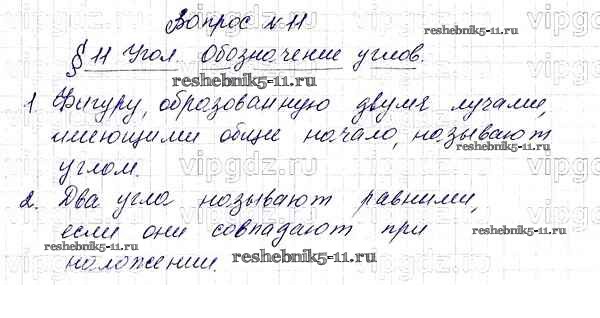 Вопрос № 11
reshebnik5-11.ru
§ 11 Угол. Обозначение углов.
reshebnik5-11.ru
1. Фигуру, образованную двумя лучами,
имеющими общие начало, называют
reshebnik5-11.ru
углом. vipgdz.ru
2. Два угла называют равными,
если они совпадают при
reshebnik5-11.ru
reshebnik5-11.ru
наложении.
reshebnik5-11.ru